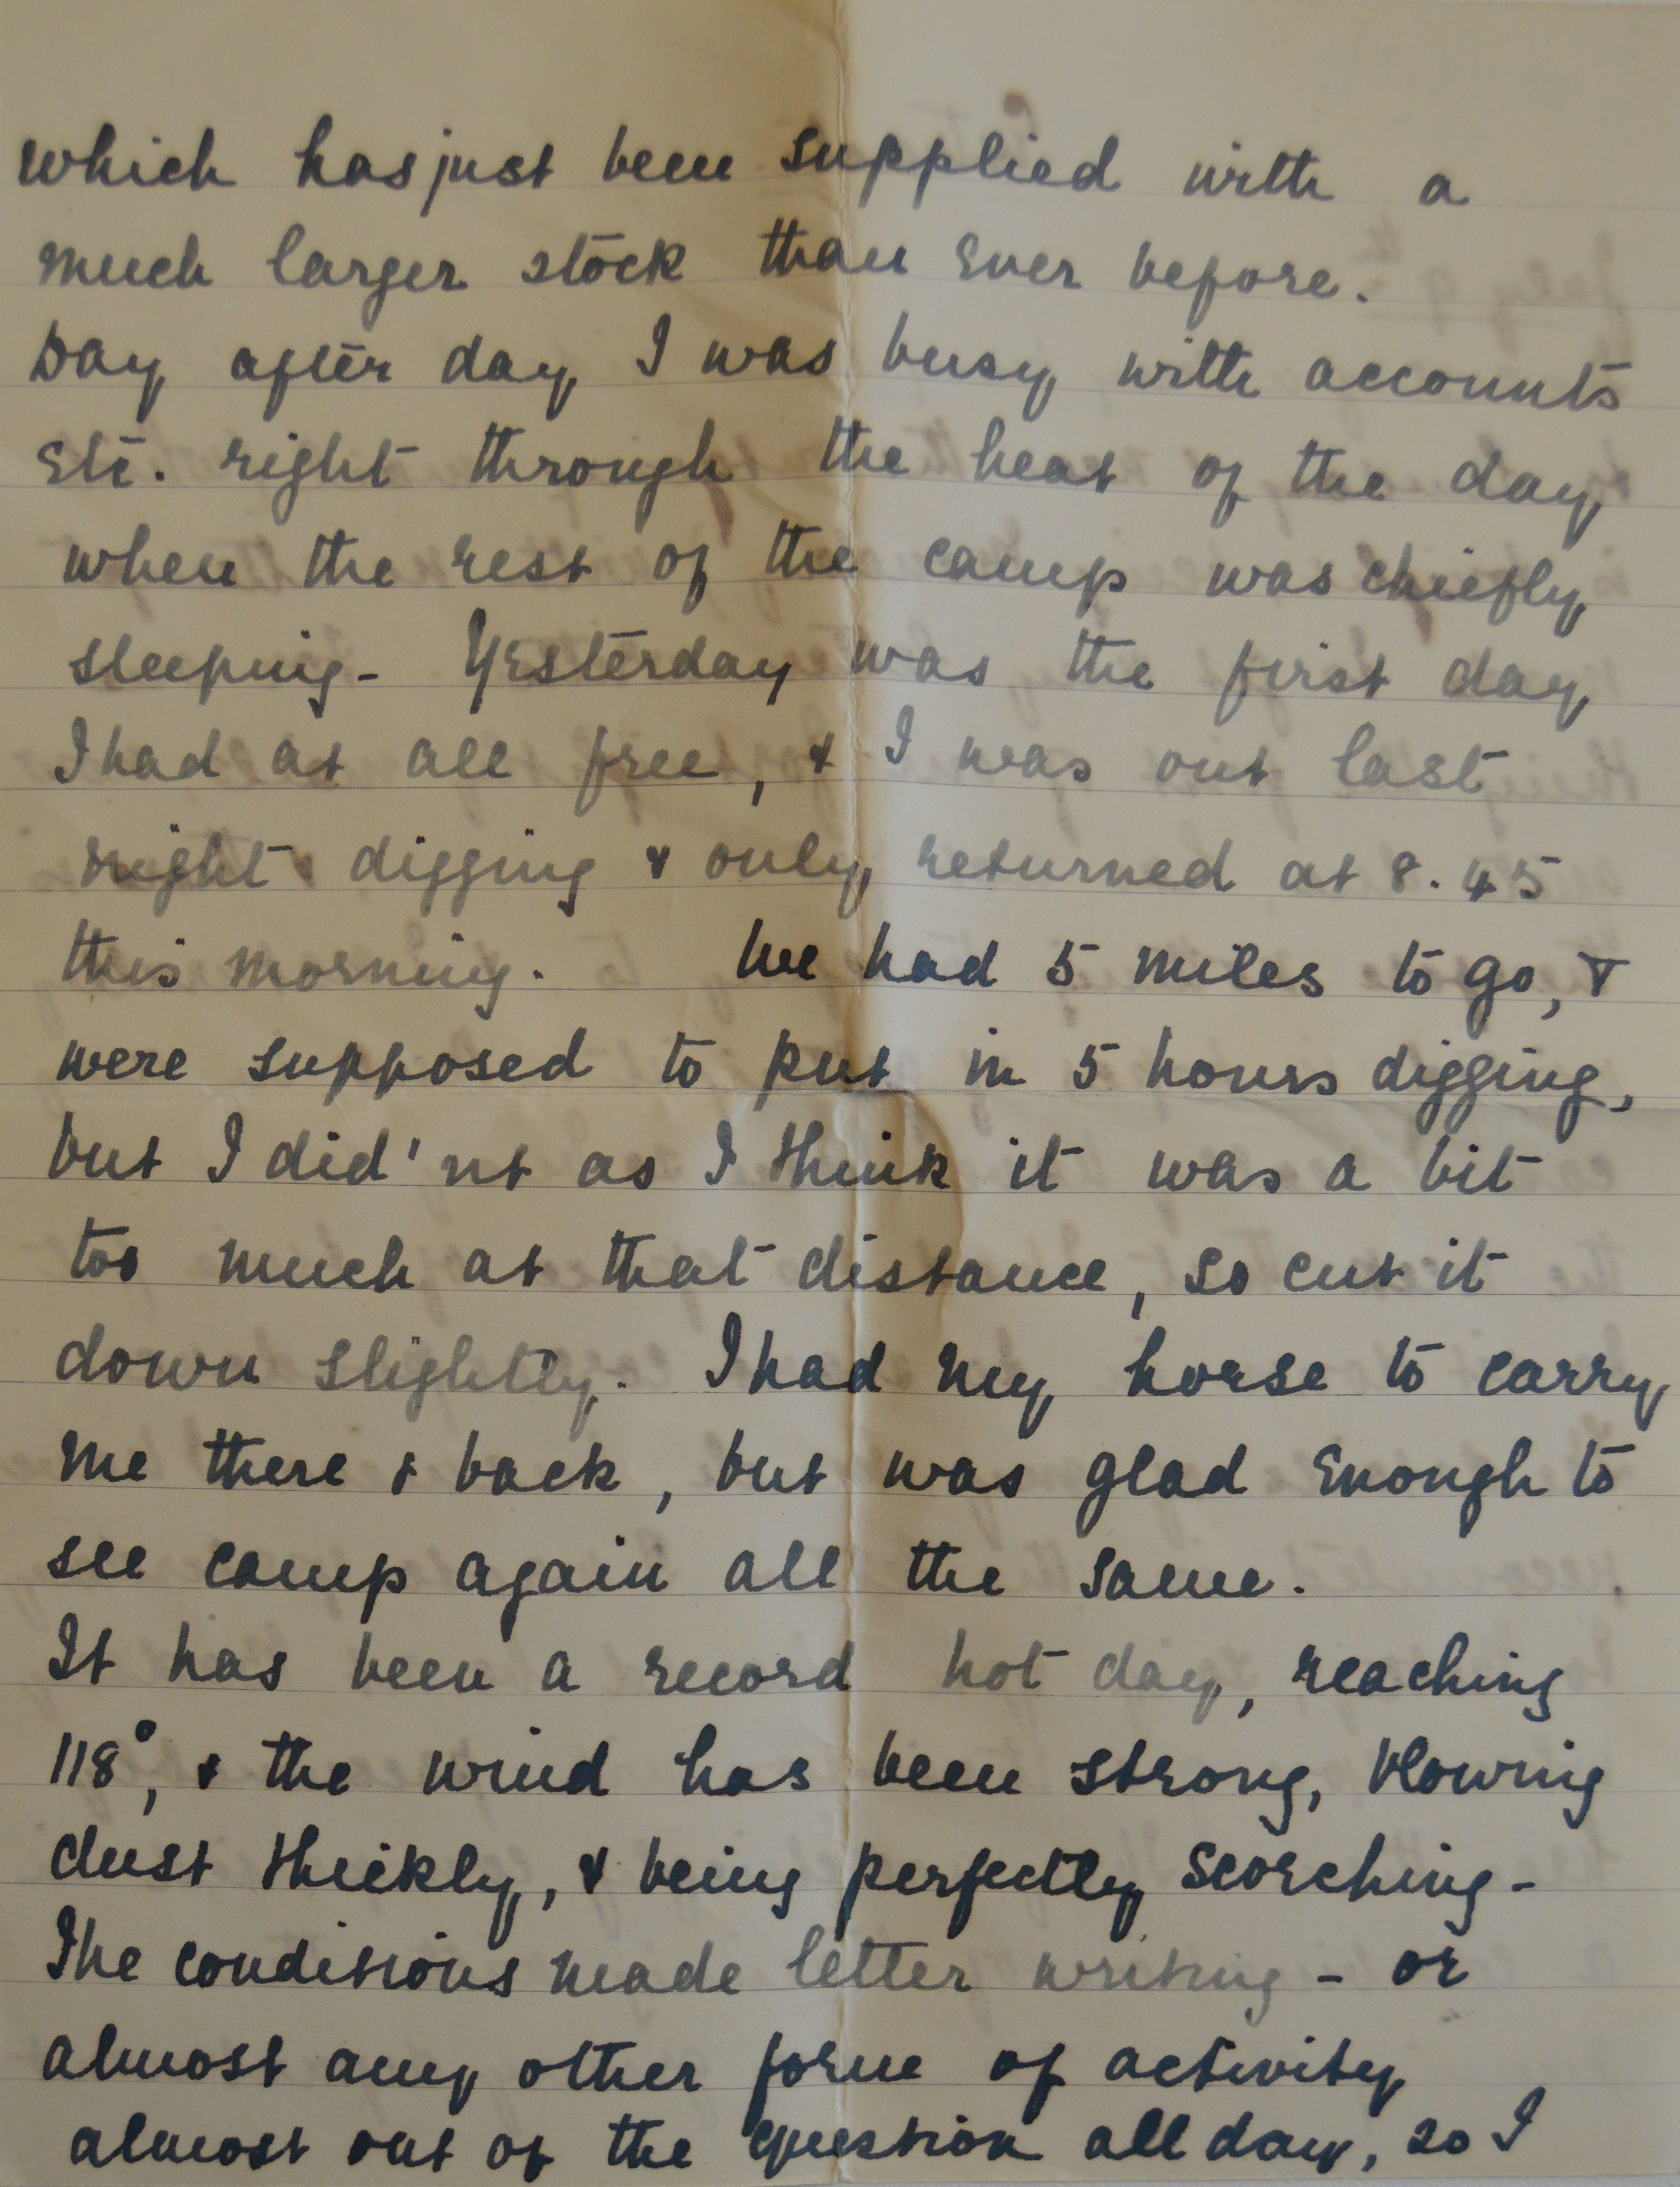 which has just been supplied with a
much larger stock than ever before.
Day after day I was busy with accounts
etc. right through the heat of the day
when the rest of the camp was chiefly
sleeping - Yesterday was the first day
I had at all free, & I was out last
night digging & only returned at 8.45
this morning. We had 5 miles to go, &
were supposed to put in 5 hours digging,
but I did'nt as I think it was a bit
too much at that distance, so cut it
down slightly. I had my horse to carry
me there & back, but was glad enough to
see camp again all the same.
It has been a record hot day, reaching
118°, & the wind has been strong, blowing
dust thickly, & being perfectly scorching -
The conditions made letter writing - or
almost any other form of activity
almost out of the question all day, so I